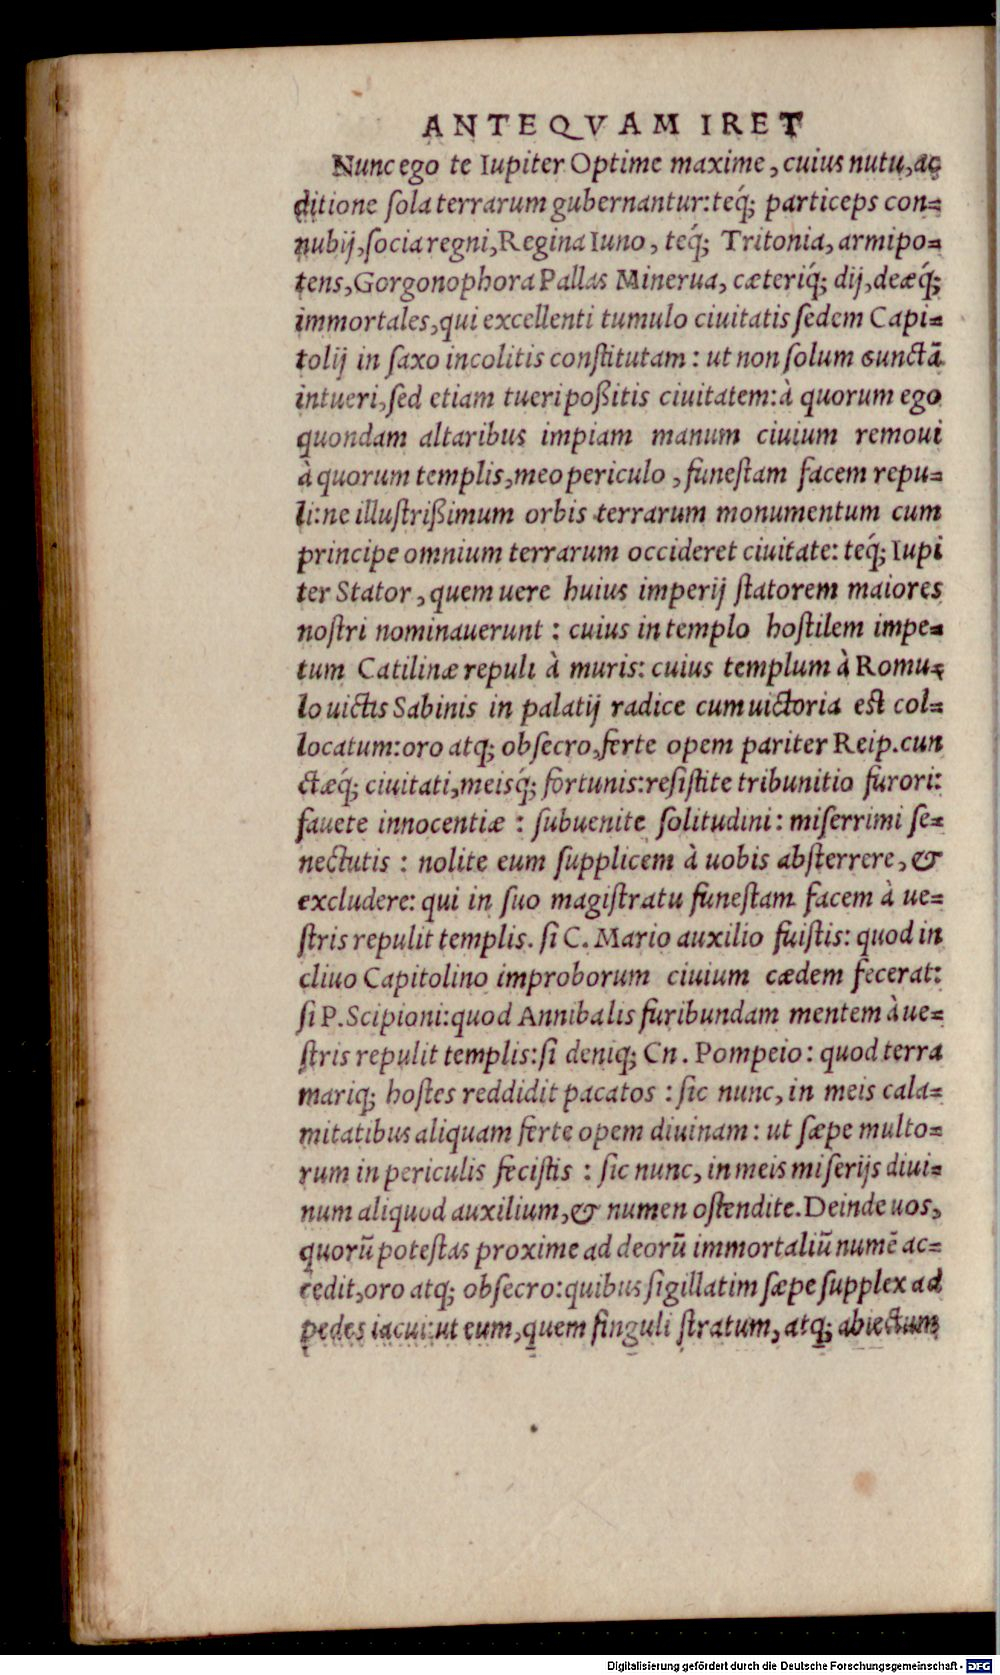 ANTEQVAM IRET
Nunc ego te Iupiter Optime maxime, cuius nutu, ac
ditione sola terrarum gubernantur: teq́; particeps con=
nubij, socia regni, Regina Iuno, teq́; Tritonia, armipo=
tens, Gorgonophora Pallas Minerua, cæteriq́; dij, deæq́;
immortales, qui excellenti tumulo ciuitatis sedem Capi=
tolij in saxo incolitis constitutam: ut non solum cunctā
intueri, sed etiam tueri poßitis ciuitatem: à quorum ego
quondam altaribus impiam manum ciuium remoui
à quorum templis, meo periculo, funestam facem repu=
li: ne illustrißimum orbis terrarum monumentum cum
principe omnium terrarum occideret ciuitate: teq́; Iupi
ter Stator, quem uere huius imperij statorem maiores
nostri nominauerunt: cuius in templo hostilem impe=
tum Catilinæ repuli à muris: cuius templum à Romu=
lo uictis Sabinis in palatij radice cum uictoria est col=
locatum: oro atq; obsecro, ferte opem pariter Reip. cun
ctæq́; ciuitati, meisq́; fortunis: resistite tribunitio furori:
fauete innocentiæ: subuenite solitudini: miserrimi se=
nectutis: nolite eum supplicem à uobis absterrere, &
excludere: qui in suo magistratu funestam facem à ue=
stris repulit templis. si C. Mario auxilio fuistis: quod in
cliuo Capitolino improborum ciuium cædem fecerat:
si P. Scipioni: quod Annibalis furibundam mentem à ue=
stris repulit templis: si deniq; Cn. Pompeio: quod terra
mariq; hostes reddidit pacatos: sic nunc, in meis cala=
mitatibus aliquam ferte opem diuinam: ut sæpe multo=
rum in periculis fecistis: sic nunc, in meis miserijs diui=
num aliquod auxilium, & numen ostendite. Deinde uos,
quorū potestas proxime ad deorū immortaliū numē ac=
cedit, oro atq; obsecro: quibus sigillatim sæpe supplex ad
pedes iacui: ut eum, quem singuli stratum, atq; abiectum
Digitalisierung gefördert durch die Deutsche Forschungsgemeinschaft - DFG